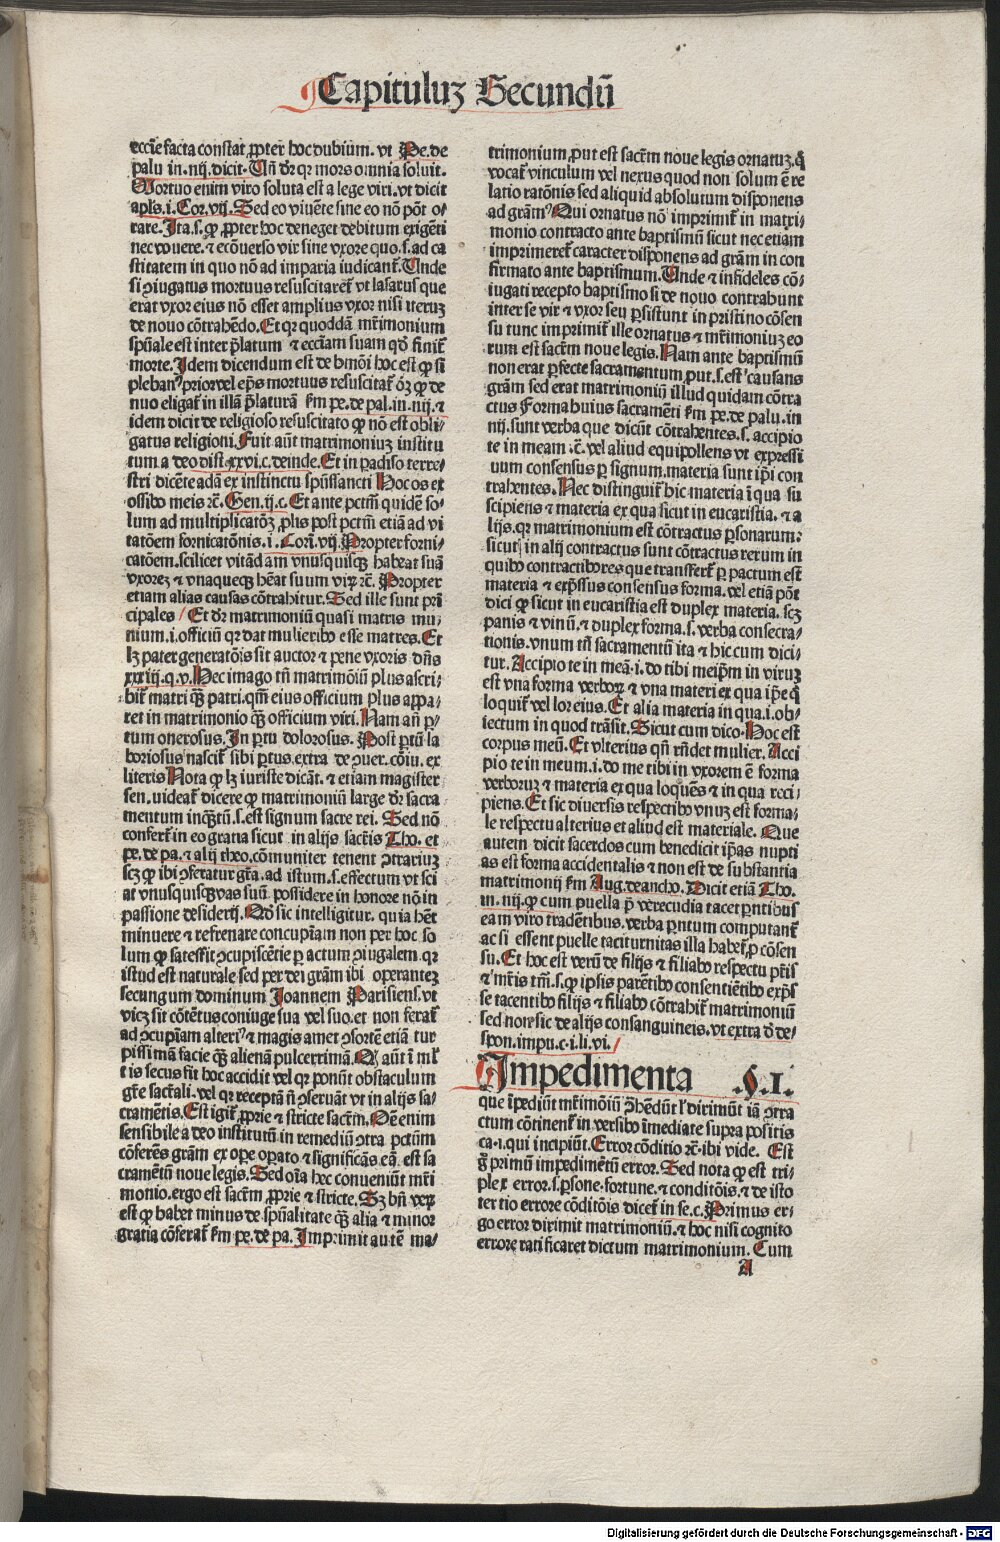 Capituluz Secundū
eccīe facta constat ꝓpter hoc dubium. vt Pe. de
palu in. iiij. dicit. Tn̄ dr̄ qꝛ mors omnia soluit.
Mortuo enim viro soluta est a lege viri. vt dicit
apls. i. Cor. vij. Sed eo viuēte sine eo nō pōt o⸗
rare. Ita. s. ꝙ ꝓpter hoc deneget debitum exigēti
nec vouere. ⁊ ecōuerso vir sine vxore quo. s. ad ca
stitatem in quo nō ad imparia iudicant᷑. Unde
si ↄiugatus mortuus resuscitaret᷑ vt lasarus que
erat vxor eius nō esset amplius vxor nisi iteruz
de nouo cōtrahēdo. Et qꝛ quoddā mr̄imonium
spūale est inter p̄latum ⁊ ecciam suam qd̄ finit᷑
morte. Idem dicendum est de hmōi hoc est ꝙ si
pleban⁹ prior vel ep̄s mortuus resuscitat᷑ oꝫ ꝙ de
nuo eligat᷑ in illā p̄laturā fm pe. de pal. in. iiij. ⁊
idem dicit de religioso resuscitato ꝙ nō est obli⸗
gatus religioni. Fuit aūt matrimoniuz institu
tum a deo dist. xxvi. c. deinde. Et in padiso terre⸗
stri dicēte adā ex instinctu spūssancti Hoc os ex
ossibꝰ meis ⁊c̄. Gen. ij. c. Et ante pctm̄ quidē so⸗
lum ad multiplicatōꝫ ꝓlis post pctm̄ etiā ad vi
tatōem fornicatōnis. i. Corī. vij. Propter forni⸗
catōem. scilicet vitādam vnusquisqꝫ habeat suā
vxorez ⁊ vnaquecqꝫ hēat suum virꝝ ⁊c̄. Propter
etiam alias causas cōtrahitur. Sed ille sunt pri
cipales / Et dr̄ matrimoniū quasi matris mu⸗
nium. i. officiū qꝛ dat mulieribꝰ esse matres. Et
lꝫ pater generatōis sit auctor ⁊ pene vxoris dn̄s
xxxiij. q. v. Hec imago tn̄ matrimōiū plus ascri⸗
bit᷑ matri qꝫ patri. qm̄ eius officium plus appa⸗
ret in matrimonio qꝫ officium viri. Nam an̄ p⸗
tum onerosus. In ꝑtu dolorosus. Post ꝑtū la
boriosus nascit᷑ sibi ꝑtus. extra de ↄuer. cōiu. ex
literis Nota ꝙ lꝫ iuriste dicāt. ⁊ etiam magister
sen. videat᷑ dicere ꝙ matrimoniū large dr̄ sacra
mentum inqꝫtū. s. est signum sacre rei. Sed nō
confert᷑ in eo gratia sicut in alijs sacr̄is Tho. et
pe. de pa. ⁊ alij theo. cōmuniter tenent ↄtrariuz
scꝫ ꝙ ibi ↄferatur gr̄a. ad istum. s. effectum vt sci
at vnusquisqꝫ vas suū possidere in honore nō in
passione desiderij. Qd̄ sic intelligitur. quia hēt
minuere ⁊ refrenare concupiam non per hoc so
lum ꝙ satefit ↄcupiscētie ꝑ actum ↄiugalem. qꝛ
istud est naturale sed per dei grām ibi operantez
secungum dominum Joannem Parisiens. vt
vicꝫ sit cōtētus coniuge sua vel suo. et non ferat᷑
ad ↄcupiam alteri⁹ ⁊ magis amet ↄsortē etiā tur
pissimā facie qꝫ alienā pulcerrimā. Qꝫ aūt ī mr̄
t is secus fit hoc accidit vel qꝛ ponūt obstaculum
gr̄e sacr̄ali. vel qꝛ receptā n̄ ↄseruāt vt in alijs sa⸗
cramētis. Est igit᷑ ꝓprie ⁊ stricte sacr̄m. Oē enim
sensibile a deo institutū in remediū ↄtra pctūm
cōferēs grām ex oꝑe oꝑato ⁊ significās eā est sa
cramētū noue legis. Sed oīa hec conueniūt mr̄i
monio. ergo est sacr̄m ꝓprie ⁊ stricte. Sꝫ bn̄ veꝝ
est ꝙ habet minus de spūalitate qꝫ alia ⁊ minor
gratia cōferat᷑ fm pe. de pa. Imprimit autē ma⸗
trimonium ꝓut est sacr̄m noue legis ornatuz. q̄
vocat᷑ vinculum vel nexus quod non solum ē re
latio ratōnis sed aliquid absolutum disponens
ad grām⁹ Qui ornatus nō imprimit᷑ in matri⸗
monio contracto ante baptismū sicut nec etiam
imprimeret᷑ caracter disponens ad grām in con
firmato ante baptismum. Unde ⁊ infideles cō⸗
iugati recepto baptismo si de nouo contrahunt
inter se vir ⁊ vxor seu ꝑsistunt in pristino cōsen
su tunc imprimit᷑ ille ornatus ⁊ mr̄imoniuz eo
rum est sacr̄m noue legis. Nam ante baptismū
non erat ꝑfecte sacramentum ꝓut. s. est causans
grām sed erat matrimoniū illud quidam cōtra
ctus Forma huius sacramēti fm pe. de palu. in
iiij. sunt verba que dicūt cōtrahentes. s. accipio
te in meam. ⁊c̄. vel aliud equipollens vt expressi
uum consensus ꝑ signum. materia sunt ip̄i con
trahentes. Nec distinguit᷑ hic materia ī qua su
scipiens ⁊ materia ex qua sicut in eucaristia. ⁊ a
lijs. qꝛ matrimonium est cōtractus ꝑsonarum⸗
sicut in alij contractus sunt cōtractus rerum in
quibꝰ contractibꝰ res que transfert᷑ ꝑ pactum est
materia ⁊ exp̄ssus consensus forma. vel etiā pōt
dici ꝙ sicut in eucaristia est duplex materia. scꝫ
panis ⁊ vinū. ⁊ duplex forma. s. verba consecra⸗
tionis. vnum tn̄ sacramentū ita ⁊ hic cum dici⸗
tur. Accipio te in meā. i. do tibi meip̄m in viruz
est vna forma verboꝝ ⁊ vna materi ex qua ip̄e q̄
loquit᷑ vel lor eius. Et alia materia in qua. i. ob⸗
iectum in quod trāsit. Sicut cum dico. Hoc est
corpus meū. Et vlterius qn̄ rn̄det mulier. Acci
pio te in meum. i. do me tibi in vxorem ē forma
verboruz ⁊ materia ex qua loquēs ⁊ in qua reci⸗
piens. Et sic diuersis respectibꝰ vnuz est forma⸗
le respectu alterius et aliud est materiale. Que
autem dicit sacerdos cum benedicit ip̄as nupti
as est forma accidentalis ⁊ non est de substantia
matrimonij fm Aug. de ancho. Dicit etiā Tho.
in. iiij. ꝙ cum puella p̄ verecudia tacet ꝑntibus
eam viro tradētibus. verba ꝑntum computant᷑
ac si essent puelle taciturnitas illa habet᷑ ꝓ cōsen
su. Et hoc est verū de filijs ⁊ filiabꝰ respectu pr̄is
⁊ mr̄is tm̄. s. ꝙ ipsis parētibꝰ consentiētibꝰ exp̄s
se tacentibꝰ filijs ⁊ filiabꝰ cōtrahit᷑ matrimoniū
sed non sic de alijs consanguineis. vt extra d̄ de⸗
spon. impu. c. i. li. vi. /
Impedimenta .§.I.
que īpediūt mr̄imōiū ↄ̄hēdūt᷑ l᷑ dirimūt iā ↄtra
ctum cōtinent᷑ in versibꝰ īmediate supra positis
ca. i. qui incipiūt. Error cōditio ⁊c̄. ibi vide. Est
g̊ primū impedimētū error. Sed nota ꝙ est tri⸗
plex error. s. ꝑsone. fortune. ⁊ conditōis. ⁊ de isto
ter tio errore cōditōis dicet᷑ in se. c. Primus er⸗
go error dirimit matrimoniū. ⁊ hoc nisi cognito
errore ratificaret dictum matrimonium. Cum
A
Digitalisierung gefördert durch die Deutsche Forschungsgemeinschaft - DFG